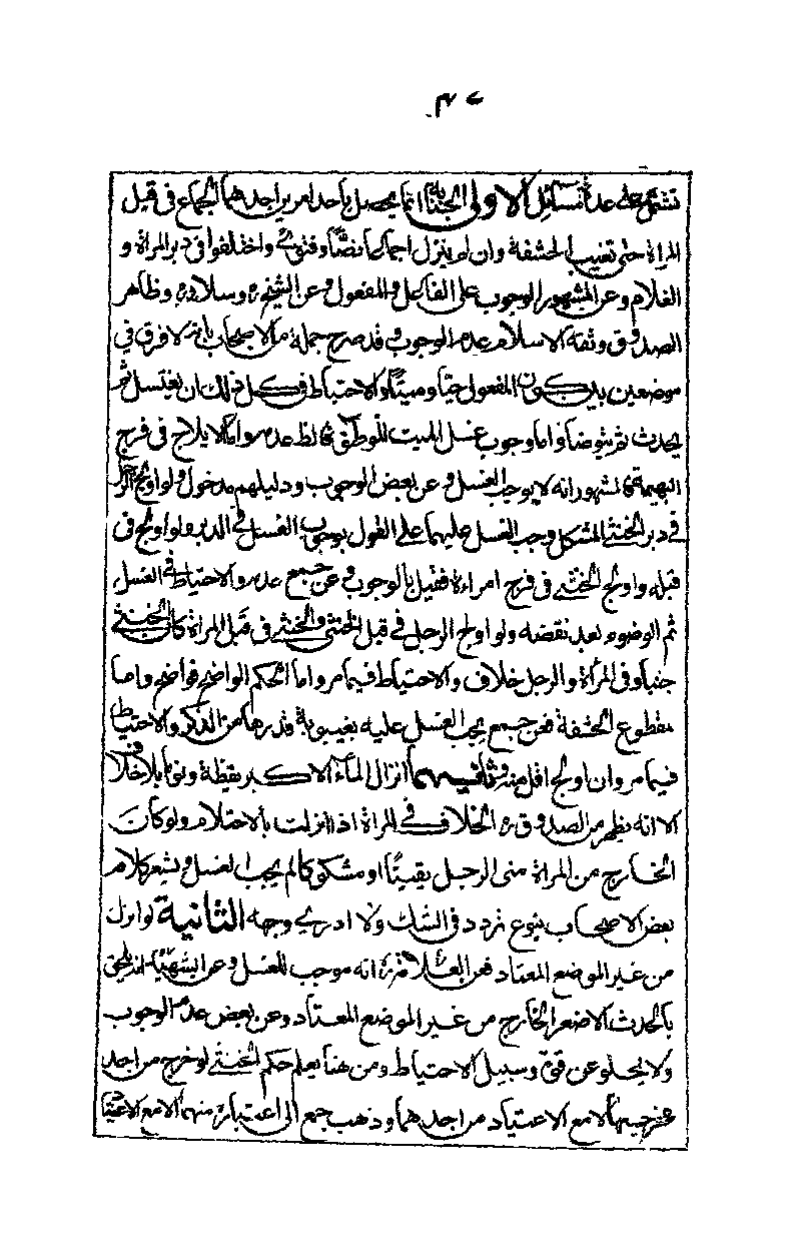 ٣٠
تشتمل على عدة مسائل الاولى الجنابة انما يحصل باحد امرين احدهما الجماع في قبل
المراة حتى تغيب الحشفة وان لم ينزل اجماعا نصا وفتوى واختلفوا في دبر المراة و
الغلام وعن المشهور الوجوب على الفاعل والمفعول وعن الشيخ ره وسلار ره وظاهر
الصدوق وثقة الاسلام عدم الوجوب وقد صرح جملة من الاصحاب بانه لا فرق في
موضعين بين كون المفعول حيا وميتا والاحتياط في كل ذلك ان يغتسل ثم
يحدث ثم يتوضا واما وجوب غسل الميت للوطئ فالظ عدمه واما الايلاج في فرج
البهيمة فالمشهور انه لا يوجب الغسل وعن بعض الوجوب ودليلهم مدخول ولو اولج الرجل
في دبر الخنثى المشكل وجب الغسل عليهما على القول بوجوب الغسل في الدبر ولو اولج في
قبله واولج الخنثى في فرج امراءة فقيل بالوجوب وعن جمع عدمه والاحتياط في الغسل
ثم الوضوء بعد نقضه ولو اولج الرجل في قبل الخنثى والخنثى في قبل المراة كان الخنثى
جنبا وفي المرأة والرجل خلاف والاحتياط فيما مر واما الحكم الواضح فواضح واما
مقطوع الحشفة فعن جمع يجب الغسل عليه بغيبوبة قدرها من الذكر والاحتياط
فيما مر وان اولج اقل منه وثانيهما انزال الماء الاكبر يقظة ونوما بلا خلاف
الا انه يظهر من الصدوق ره الخلاف في المراة اذا انزلت بالاحتلام ولو كان
الخارج من المراة منى الرجل يقينا او مشكوكا لم يجب الغسل ويشعر كلام
بعض الاصحاب بنوع تردد في الشك ولا ادري وجهه الثانية لو انزل
من غير الموضع المعتاد فعن العلامة ره انه موجب للغسل وعن الشهيد انه يلحق
بالحدث الاصغر الخارج من غير الموضع المعتاد وعن بعض عدم الوجوب
ولا يخلو عن قوة وسبيل الاحتياط ومن هنا يعلم حكم الخنثى لو خرج من احد
مخرجيها لا مع الاعتياد من احدهما وذهب جمع الى اعتباره منهما الا مع الاعتياد